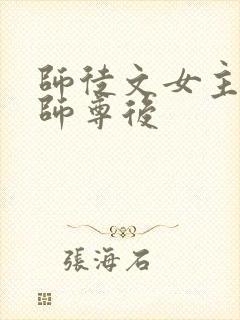 師徒文女主
師尊後
張海石